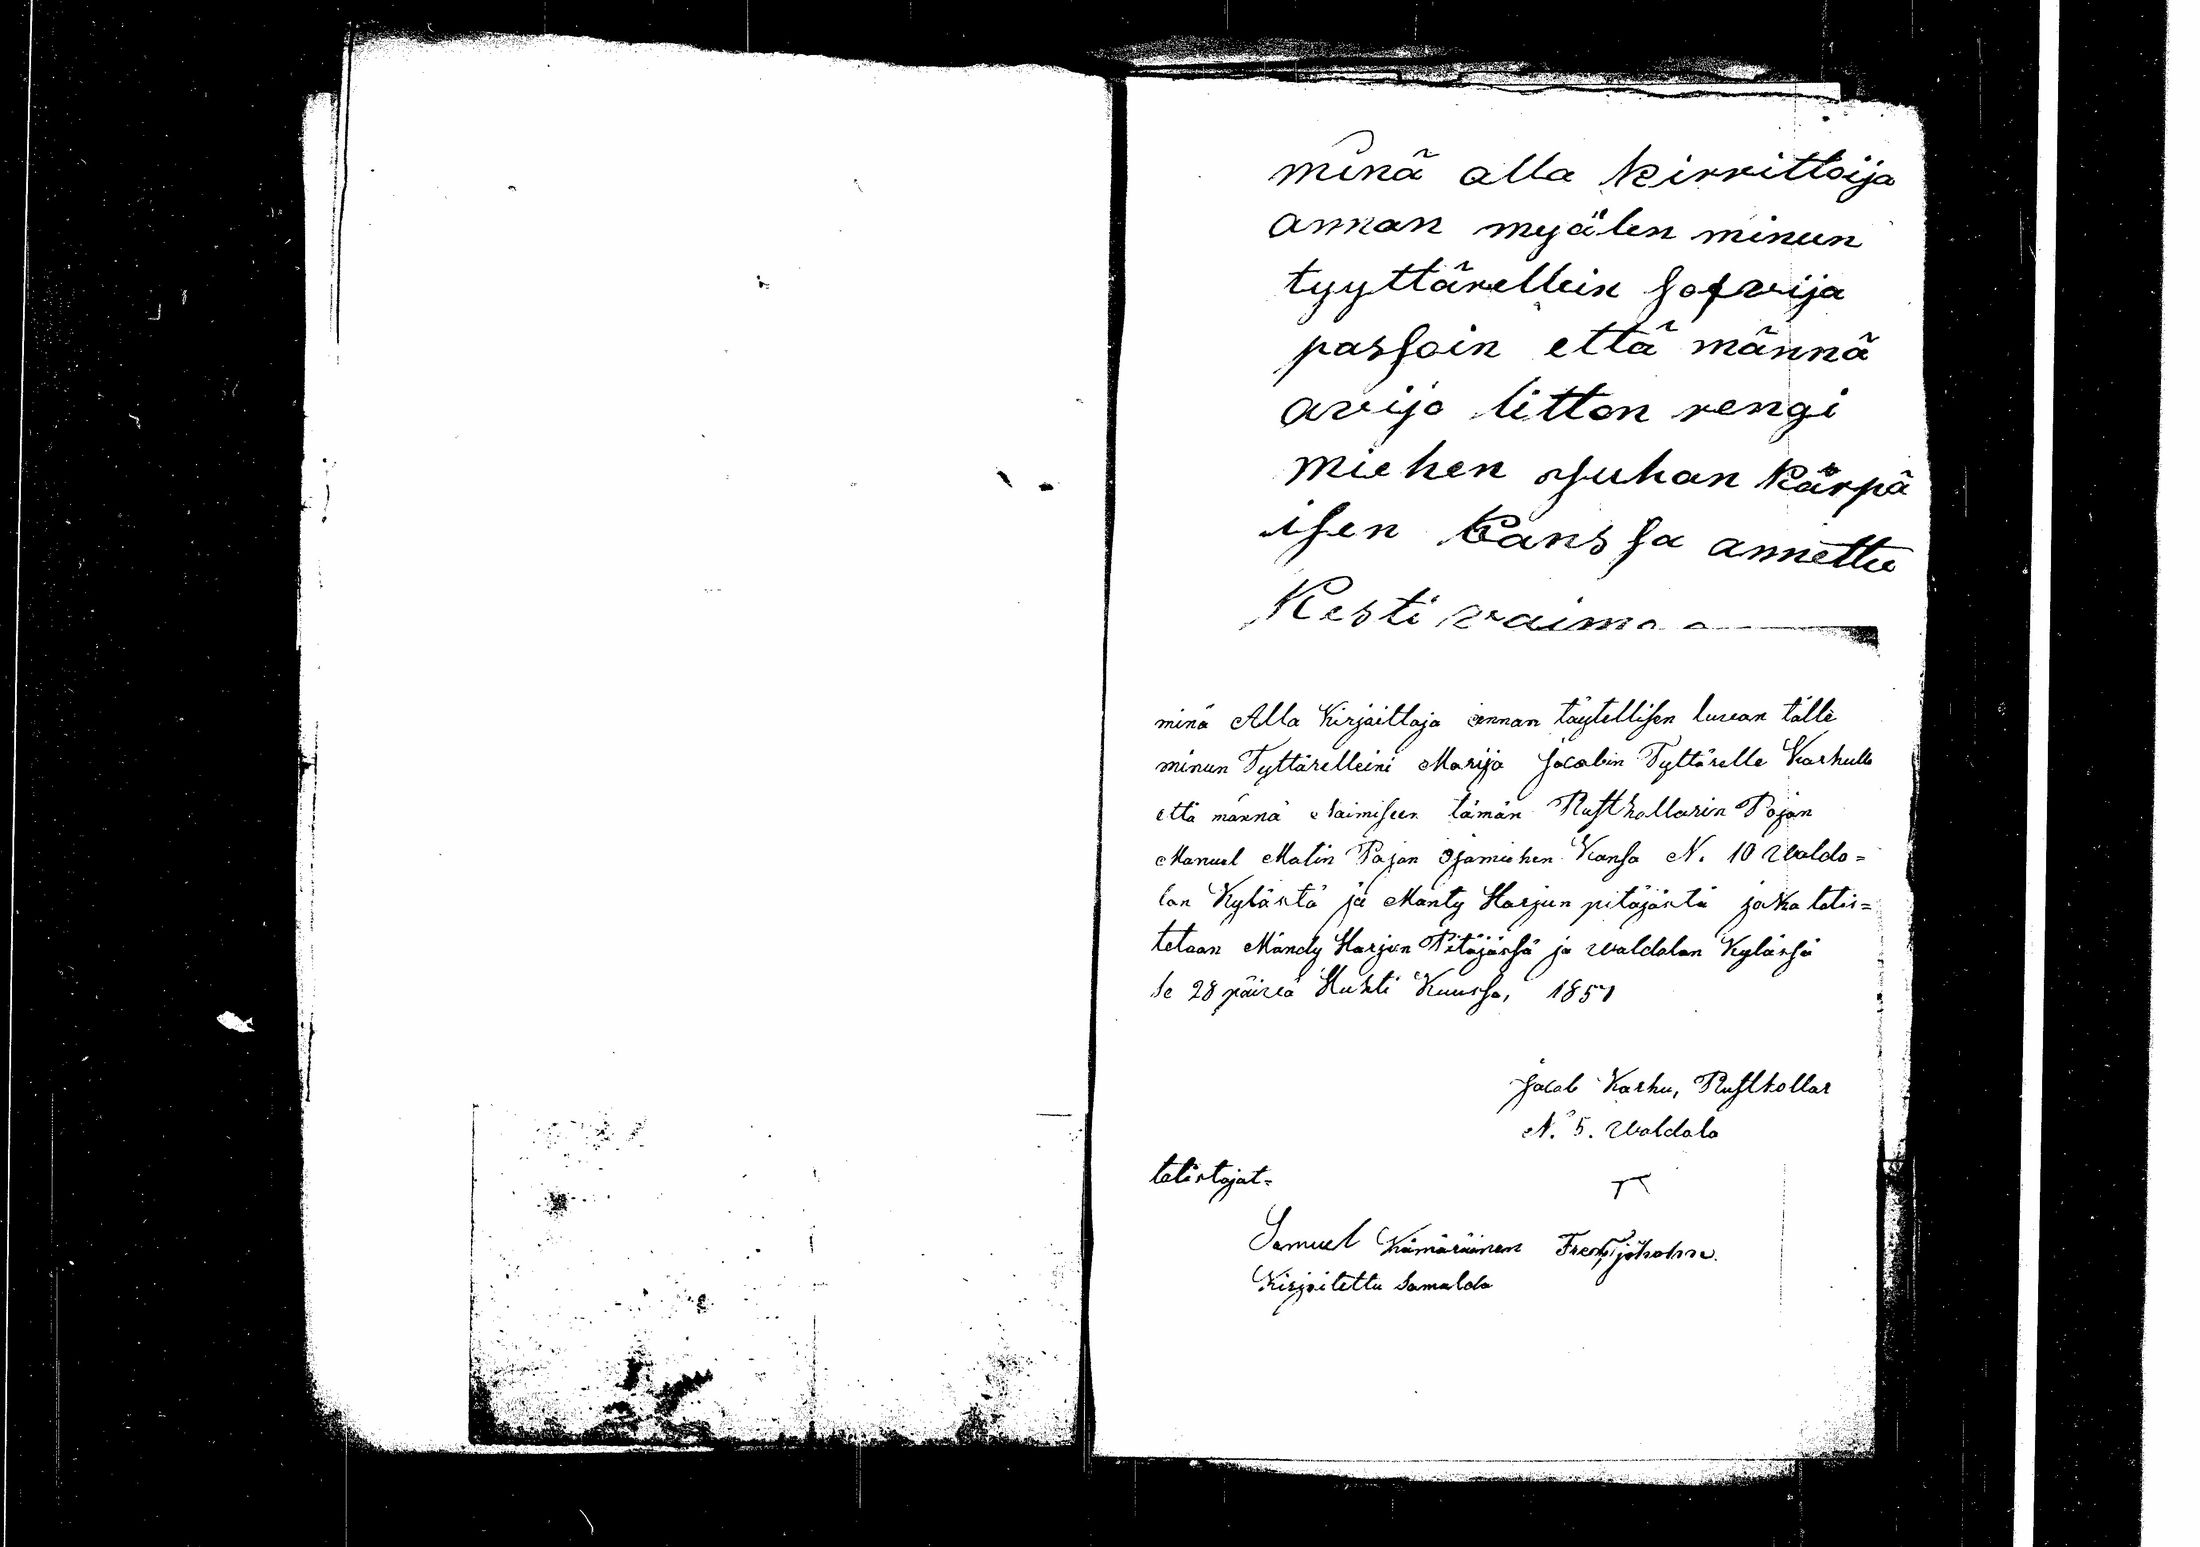 minä alla kirrittoija
annan myälen minun
tyyttärellein sofvija
passoin että männä
avijo litton rengi
miehen Juhan kärpä
isen kanssa annettu
Kesti
minä Alla Kirjaittaja annan täytellisen luvan tälle
minun Tyttärelleini Marija Jacobin Tyttärelle Karhulle
että männä Naimiseen tämän Rusthollarin Pojan
Manuel Matin Pojan Ojamiehen Kansa N. 10 Waldo=
lan Kylästä ja Mänty Harjun pitäjästä joka totis=
tetaan Mändy Harjun Pitäjässä ja Waldolan Kylässä
se 28 päivä Huhti Kuussa, 1851
Jacob Karhu, Rusthollar
N. 5. Waldola
totistajat=
Samuel Kämäräinen
Kirjoitettu Samalda